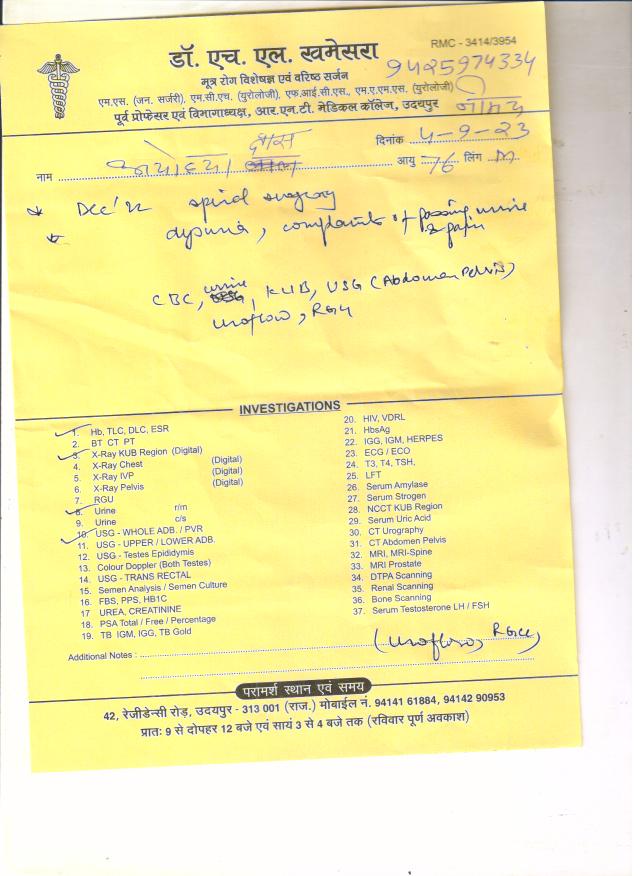 RMC - 3414/3954
डॉ. एच. एल. खमेसरा
9425974334
मूत्र रोग विशेषज्ञ एवं वरिष्ठ सर्जन
एम.एस. (जन. सर्जरी), एम.सी.एच. (युरोलोजी), एफ.आई.सी.एस., एम.ए.एम.एस. (युरोलोजी)
पूर्व प्रोफेसर एवं विभागाध्यक्ष, आर.एन.टी. मेडिकल कॉलेज, उदयपुर
नीमच
दिनांक 4-9-23
नाम अयोध्या दास आयु 76 लिंग M
* Dec' 22 spinal surgery
* dysuria, complaints of passing urine & pain
CBC, urine, KUB, USG (Abdomen Pelvis)
uroflow, RGU
INVESTIGATIONS
1. Hb, TLC, DLC, ESR
2. BT CT PT
3. X-Ray KUB Region (Digital)
4. X-Ray Chest (Digital)
5. X-Ray IVP (Digital)
6. X-Ray Pelvis (Digital)
7. RGU
8. Urine r/m
9. Urine c/s
10. USG - WHOLE ADB. / PVR
11. USG - UPPER / LOWER ADB.
12. USG - Testes Epididymis
13. Colour Doppler (Both Testes)
14. USG - TRANS RECTAL
15. Semen Analysis / Semen Culture
16. FBS, PPS, HB1C
17 UREA, CREATININE
18. PSA Total / Free / Percentage
19. TB IGM, IGG, TB Gold
20. HIV, VDRL
21. HbsAg
22. IGG, IGM, HERPES
23. ECG / ECO
24. T3, T4, TSH,
25. LFT
26. Serum Amylase
27. Serum Strogen
28. NCCT KUB Region
29. Serum Uric Acid
30. CT Urography
31. CT Abdomen Pelvis
32. MRI, MRI-Spine
33. MRI Prostate
34. DTPA Scanning
35. Renal Scanning
36. Bone Scanning
37. Serum Testosterone LH / FSH
(Uroflow, RGU)
Additional Notes :
परामर्श स्थान एवं समय
42, रेजीडेन्सी रोड़, उदयपुर - 313 001 (राज.) मोबाईल नं. 94141 61884, 94142 90953
प्रातः 9 से दोपहर 12 बजे एवं सायं 3 से 4 बजे तक (रविवार पूर्ण अवकाश)